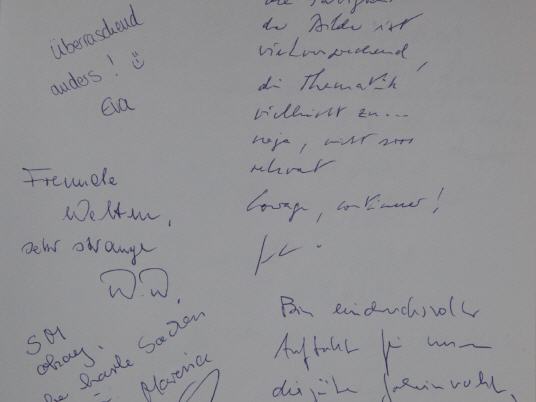 überraschend
anders!
Eva
Fremde
Welten,
sehr strange
W.W.
SM
okay.
harte Sachen
Marenia
der Bilder ist
vielversprechend,
die Thematik
vielleicht zu...
naja, nicht sooo
relevant
Courage, continuer!
Ein eindrucksvoller
Auftakt für unsere
diesjährige